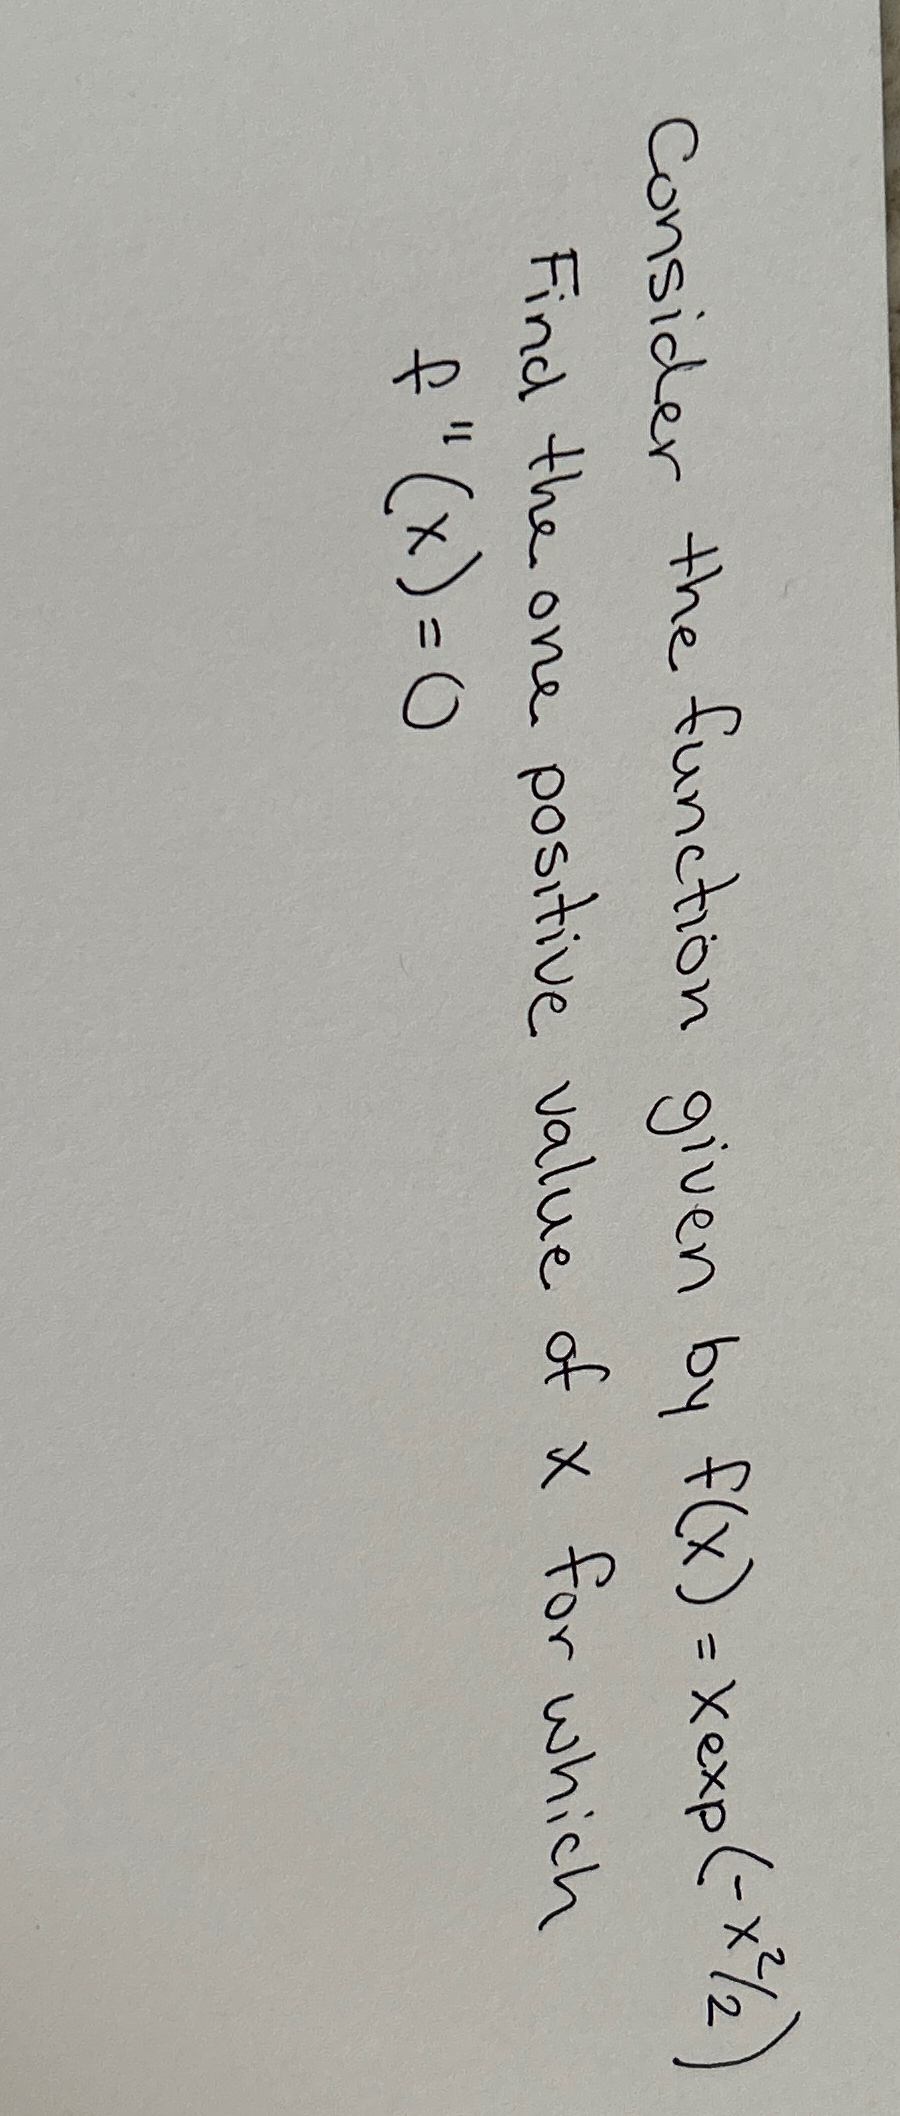 Consider the function given by f(x) = xexp(-x²/2)
Find the one positive value of x for which
f"(x) = 0